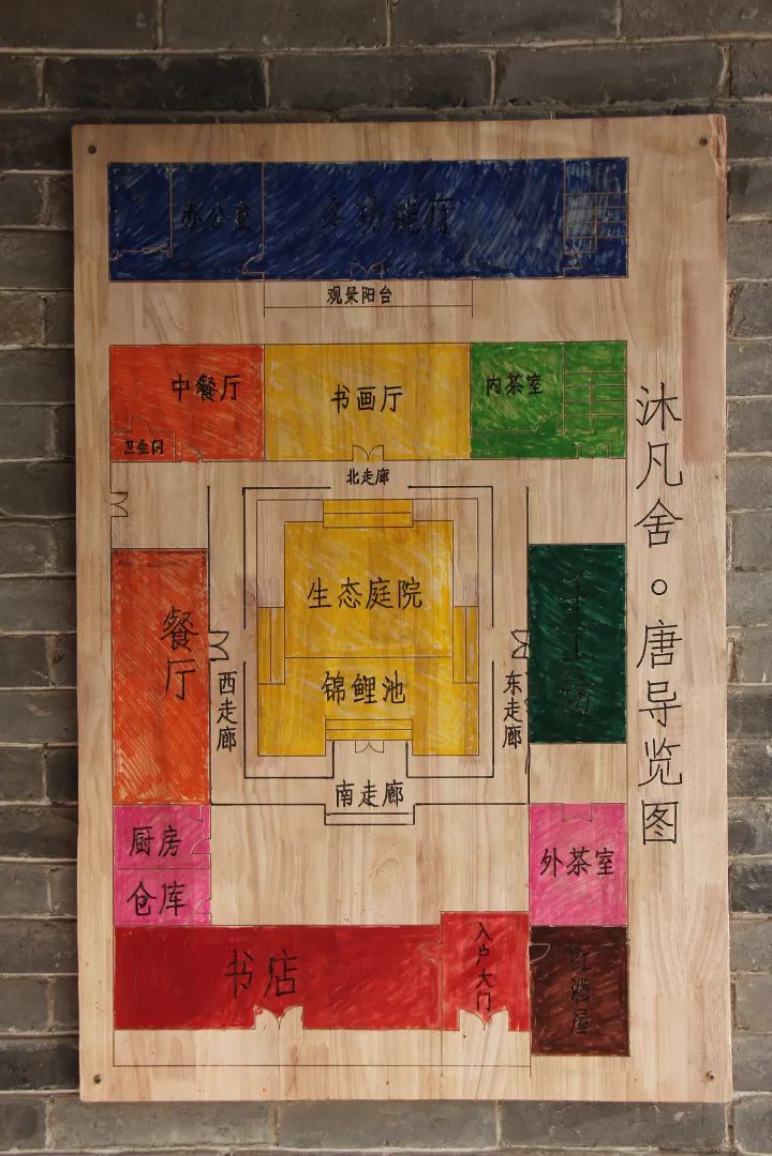 办公室
多功能厅
观景阳台
中餐厅
书画厅
内茶室
卫生间
北走廊
沐凡舍。唐导览图
生态庭院
餐厅
锦鲤池
西走廊
东走廊
南走廊
厨房
外茶室
仓库
书店
入户大门
红酒屋